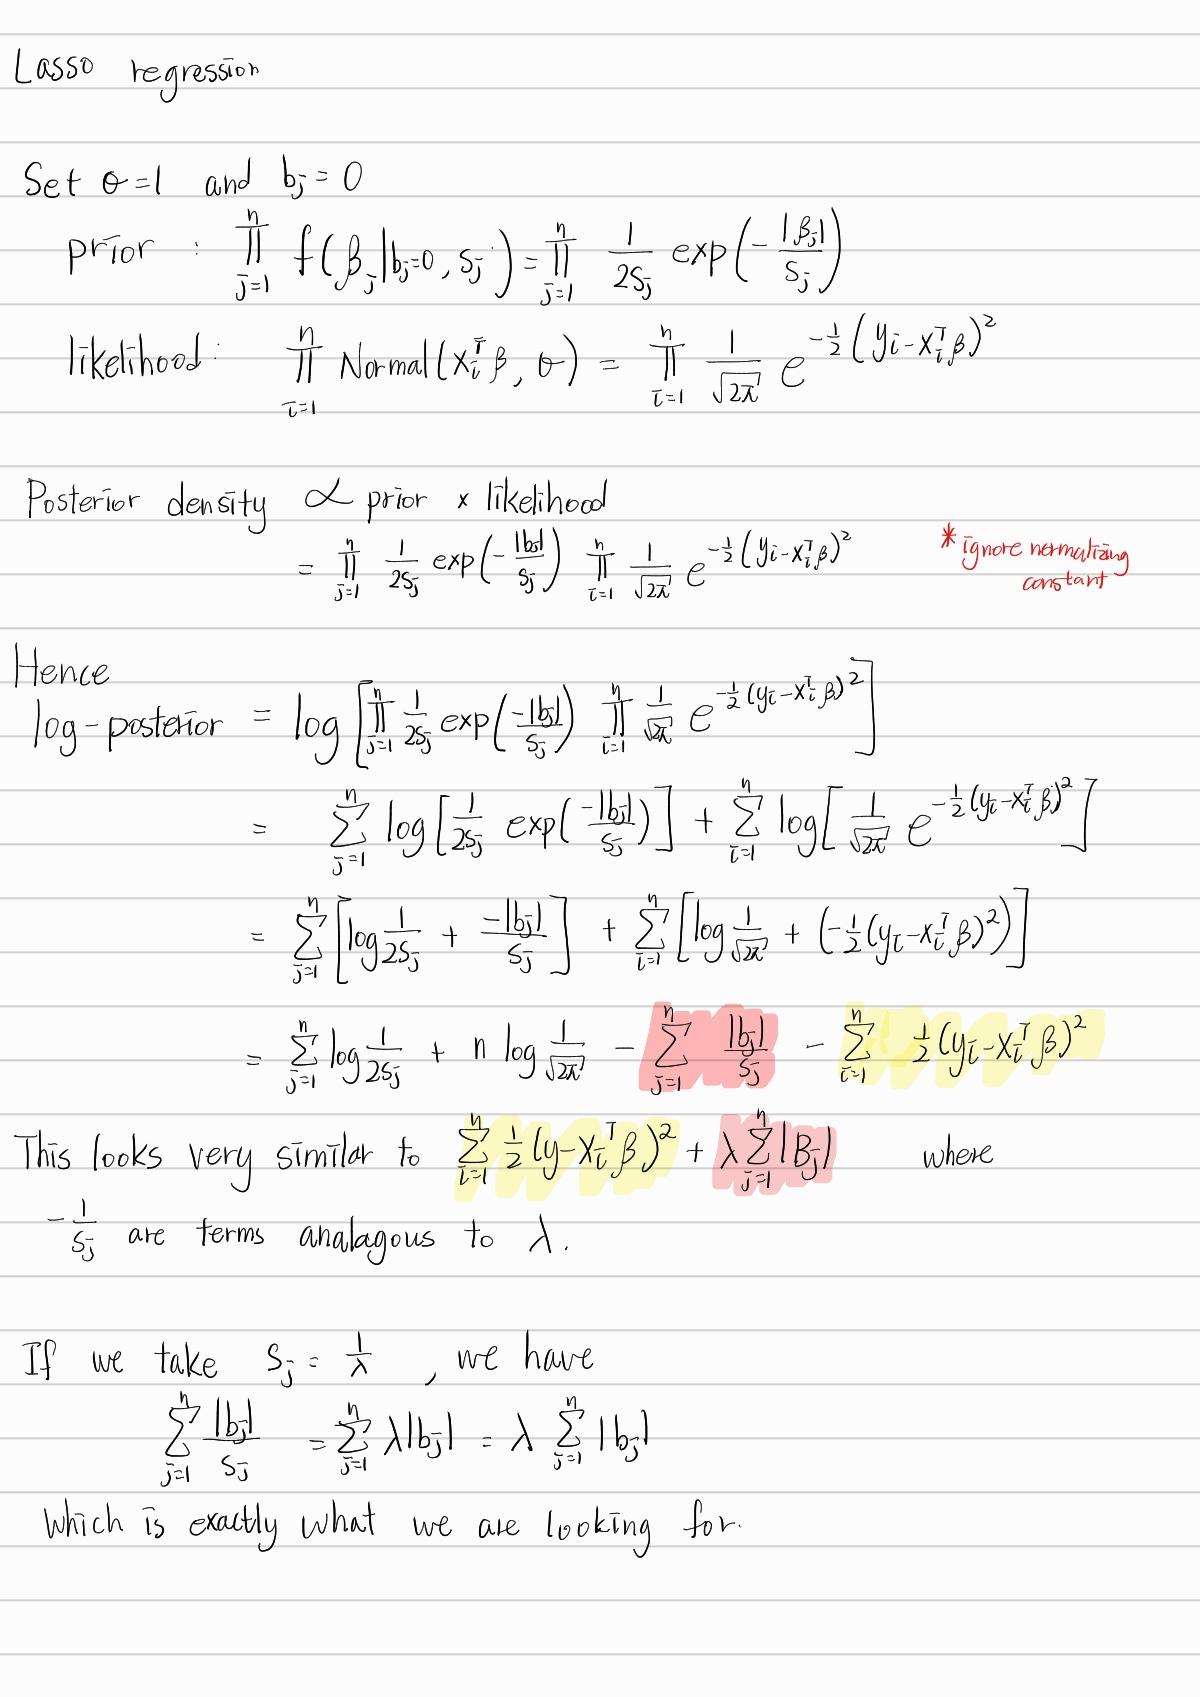 Lasso regression
Set σ=1 and bj = 0
prior : ∏_{j=1}^{n} f(βj|bj=0, Sj) = ∏_{j=1}^{n} 1/(2Sj) exp(-|βj|/Sj)
likelihood: ∏_{i=1}^{n} Normal(xi^T β, σ) = ∏_{i=1}^{n} 1/√(2π) e^{-1/2 (yi-xi^T β)^2}
Posterior density ∝ prior × likelihood
= ∏_{j=1}^{n} 1/(2Sj) exp(-|bj|/Sj) ∏_{i=1}^{n} 1/√(2π) e^{-1/2 (yi-xi^T β)^2} * ignore normalizing
constant
Hence
log-posterior = log [∏_{j=1}^{n} 1/(2Sj) exp(-|bj|/Sj) ∏_{i=1}^{n} 1/√(2π) e^{-1/2 (yi-xi^T β)^2}]
= ∑_{j=1}^{n} log [1/(2Sj) exp(-|bj|/Sj)] + ∑_{i=1}^{n} log [1/√(2π) e^{-1/2 (yi-xi^T β)^2}]
= ∑_{j=1}^{n} [log 1/(2Sj) + -|bj|/Sj] + ∑_{i=1}^{n} [log 1/√(2π) + (-1/2 (yi-xi^T β)^2)]
= ∑_{j=1}^{n} log 1/(2Sj) + n log 1/√(2π) - ∑_{j=1}^{n} |bj|/Sj - ∑_{i=1}^{n} 1/2 (yi-xi^T β)^2
This looks very similar to ∑_{i=1}^{n} 1/2 (y-xi^T β)^2 + λ ∑_{j=1}^{n} |Bj| where
-1/Sj are terms analagous to λ.
If we take Sj = 1/λ , we have
∑_{j=1}^{n} |bj|/Sj = ∑_{j=1}^{n} λ|bj| = λ ∑_{j=1}^{n} |bj|
Which is exactly what we are looking for.